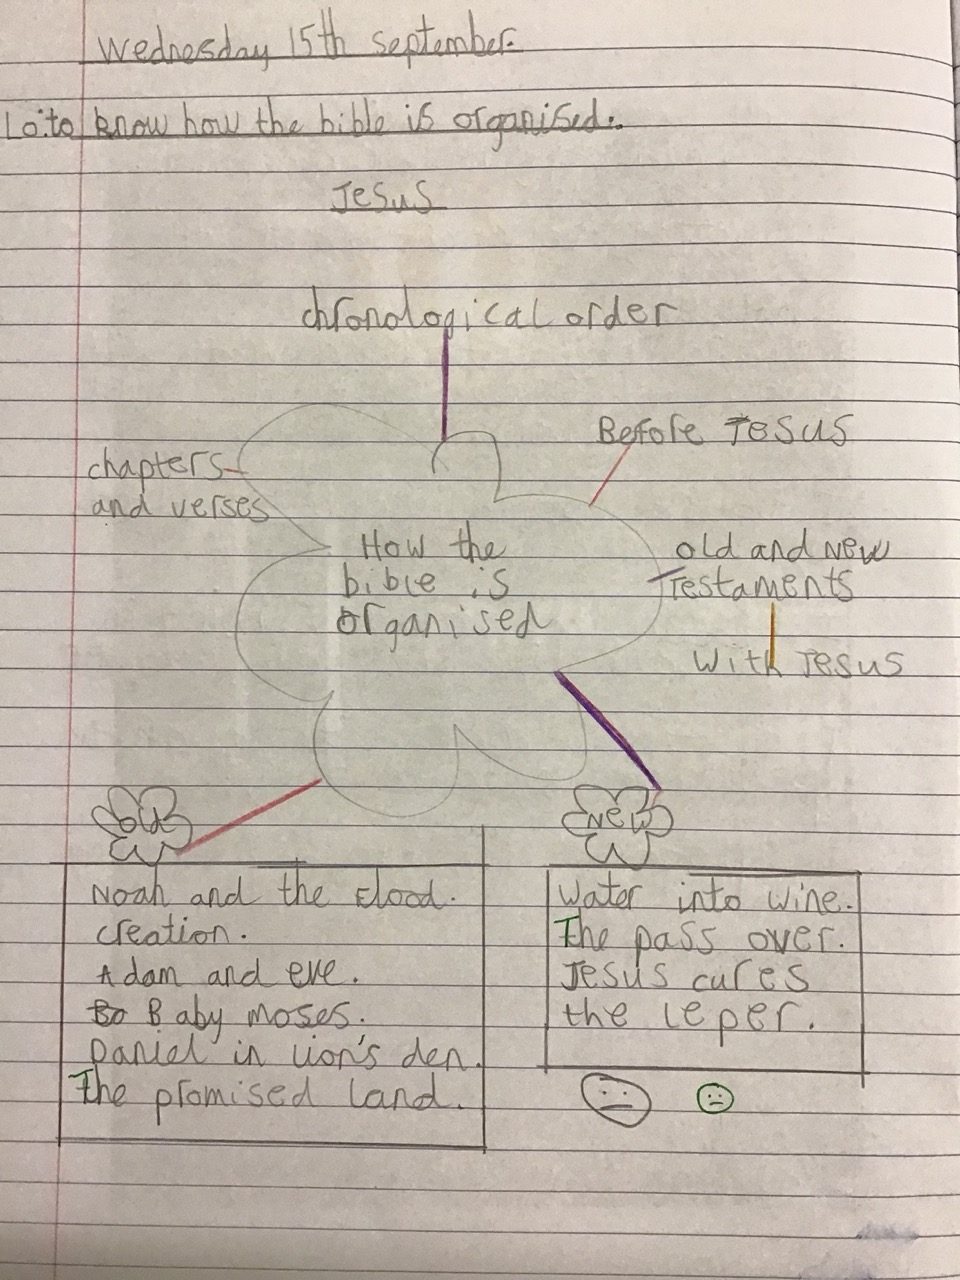 Wednesday 15th September.
Lo: to know how the bible is organised.
Jesus
chronological order
Before Jesus
chapters
and verses
How the
bible is
organised
old and New
Testaments
With Jesus
old
New
Noah and the flood.
creation.
Adam and eve.
Bo Baby moses.
Daniel in lion's den.
The promised land.
Water into wine.
The pass over.
Jesus cures
the leper.